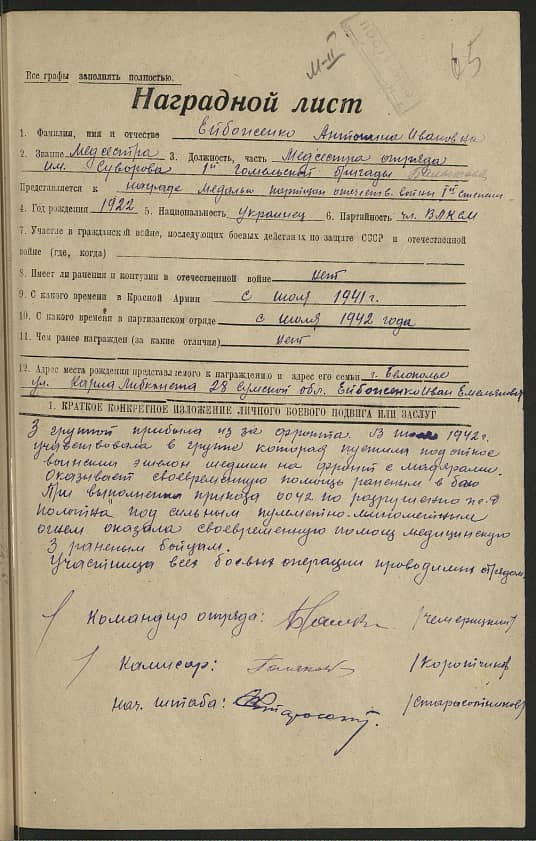 65
М-II
Все графы заполнять полностью.
Наградной лист
1. Фамилия, имя и отчество Ейбоженко Антонина Ивановна
2. Звание Медсестра 3. Должность, часть Медсестра отряда
им. Суворова 1й Гомельской бригады
Представляется к награде Медалью партизан отечеств. войны Iй степени
4. Год рождения 1922 5. Национальность украинец 6. Партийность чл. ВЛКСМ
7. Участие в гражданской войне, последующих боевых действиях по защите СССР и отечественной
войне (где, когда)
8. Имеет ли ранения и контузии в отечественной войне нет
9. С какого времени в Красной Армии с июля 1941 г.
10. С какого времени в партизанском отряде с июля 1942 года
11. Чем ранее награжден (за какие отличия) нет
12. Адрес места рождения представляемого к награждению и адрес его семьи г.
ул. Карла Либкнехта 28 Сумской обл. Ейбоженко Иван Емельянович
1. КРАТКОЕ КОНКРЕТНОЕ ИЗЛОЖЕНИЕ ЛИЧНОГО БОЕВОГО ПОДВИГА ИЛИ ЗАСЛУГ
З группой прибыла из за фронта 13 1942 г.
учавствовала в групе которая пустила под откос
воинский эшелон шедший на фронт с
Оказывает своевременную помощь раненым в бою
При выполнении приказа 0042 по разрушению ж-д
полотна под сильным пулеметно-минометным
огнем оказала своевременную помощ медицинскую
3 раненым бойцам.
Участница всех боевых операции проводимых отрядом.
Командир отряда: /Чемерицкий/
Комисар: /Коротчиков
Нач. штаба: /Старасотников/